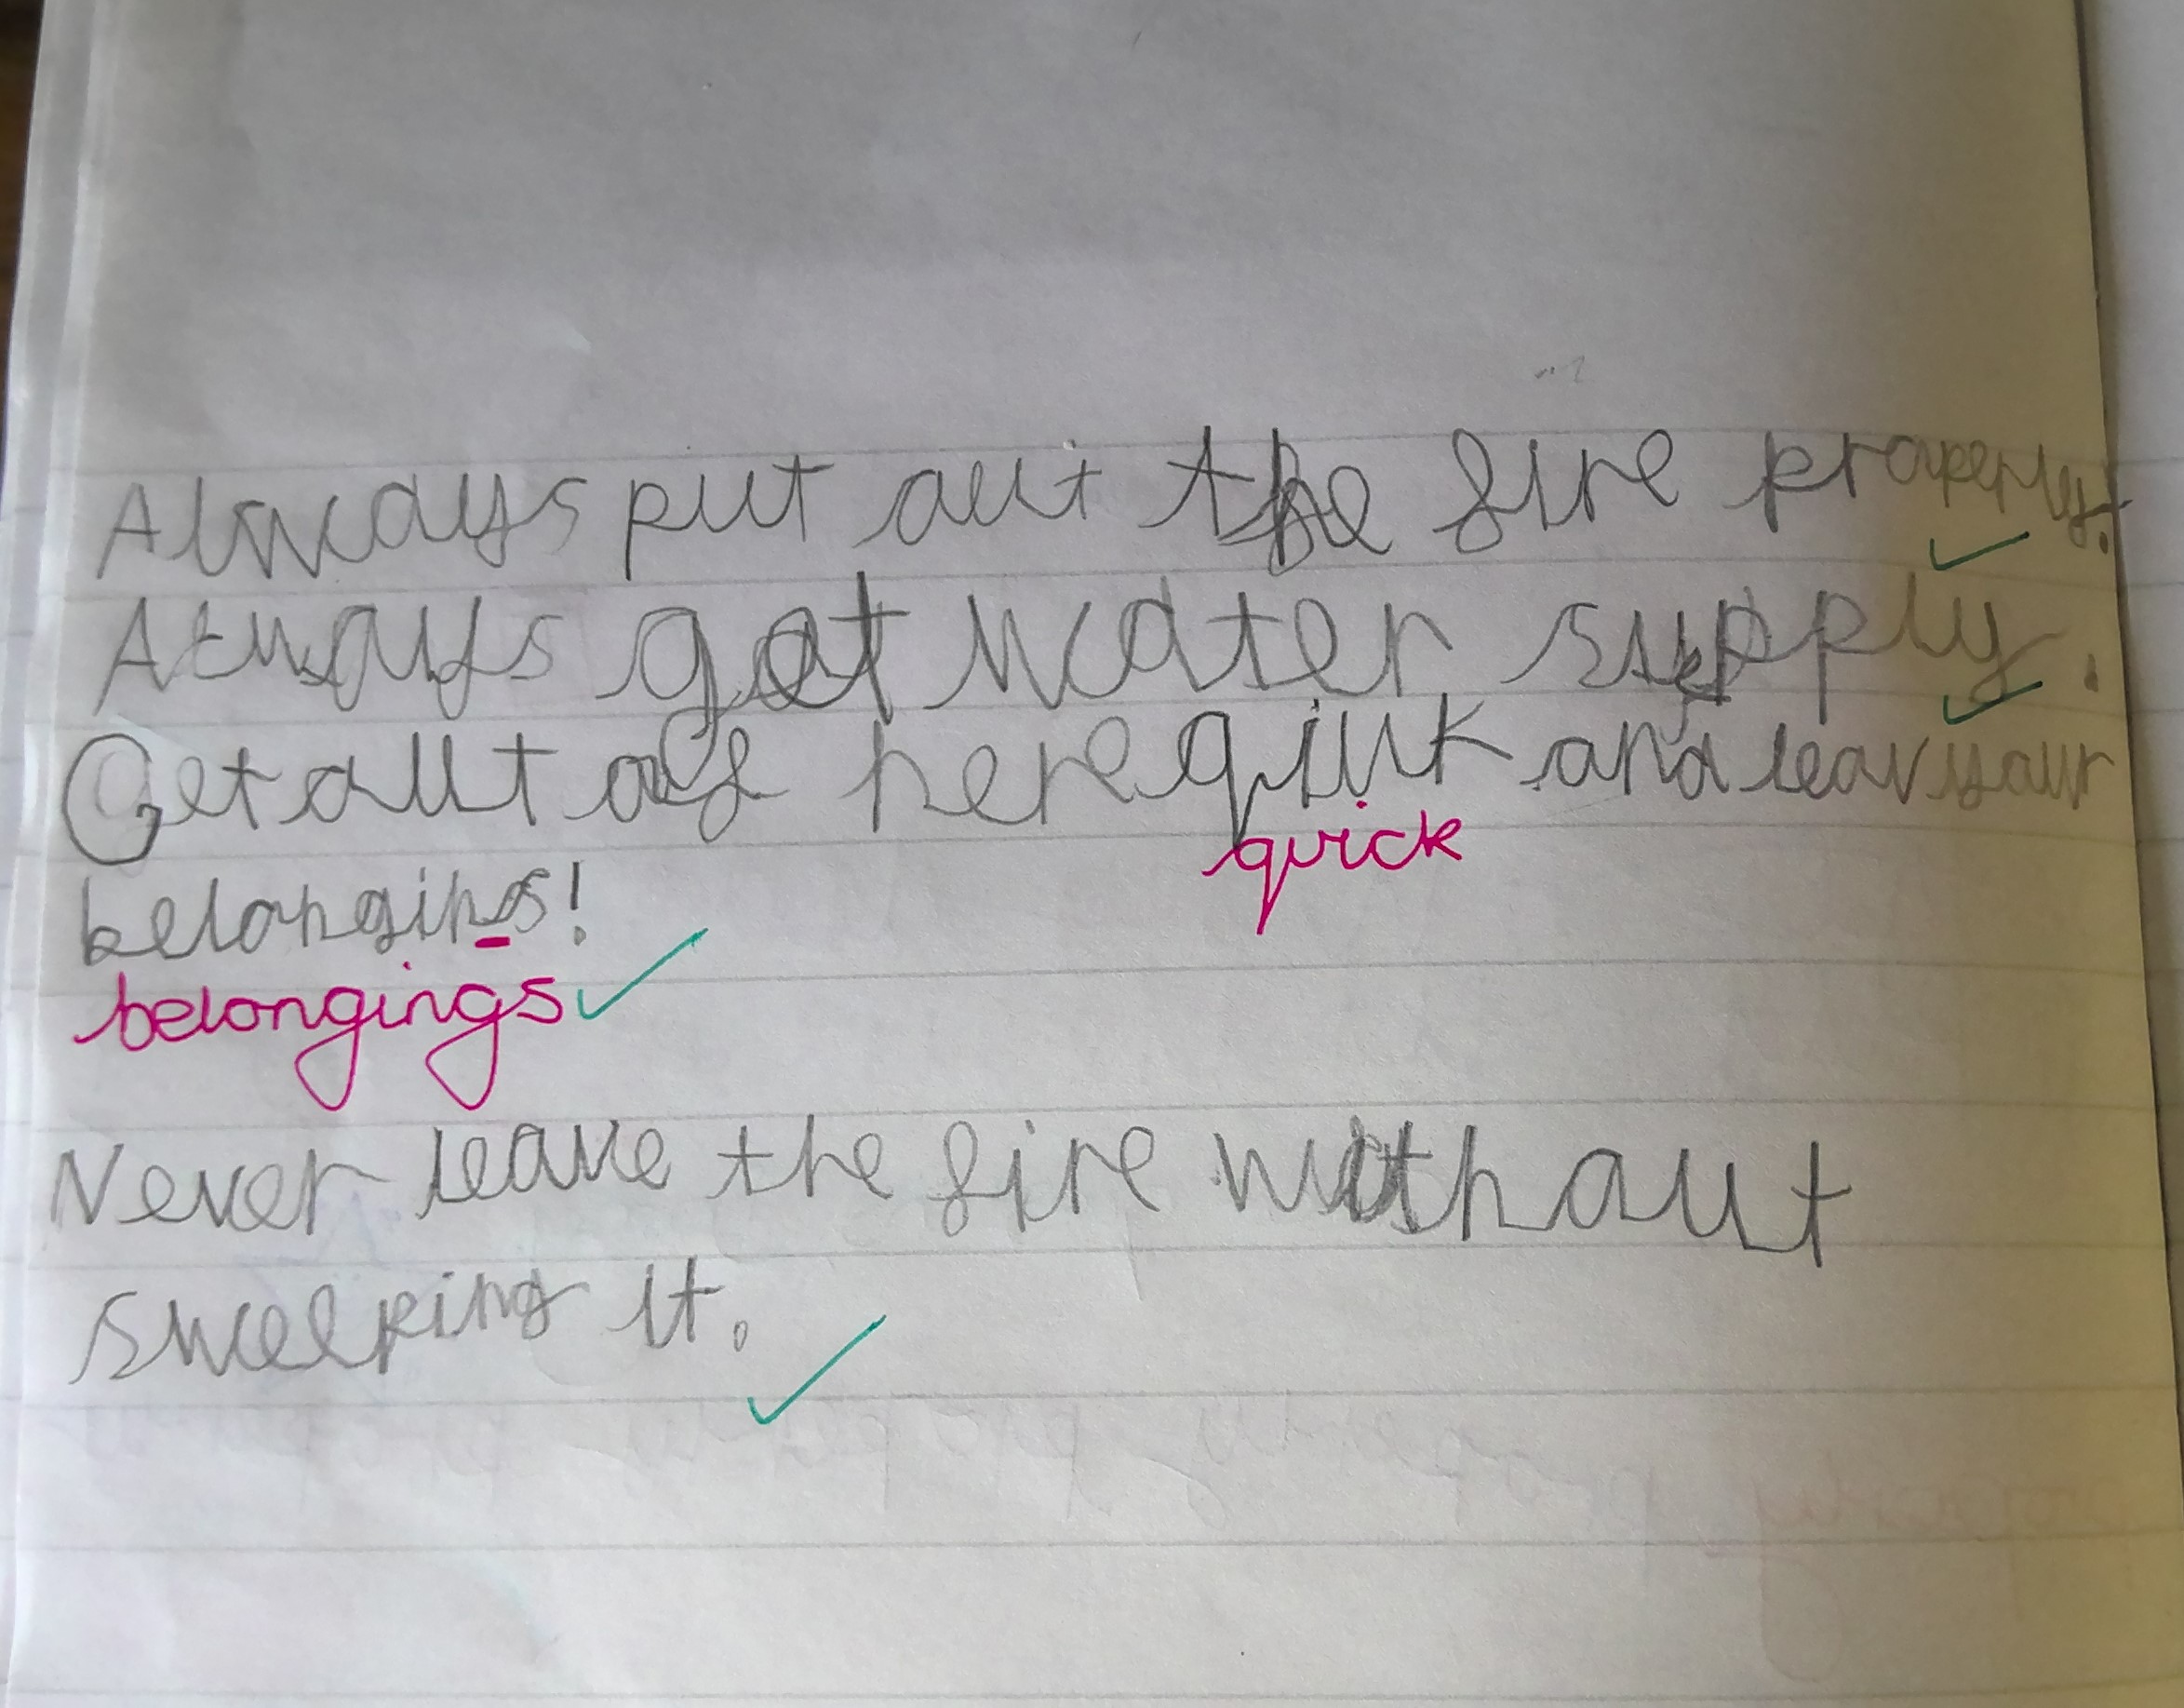 Always put out the fire properly.
Always get water supply.
Get out of here qiuk and leav your
quick
belongins!
belongings
Never leave the fire without
sweeping it.